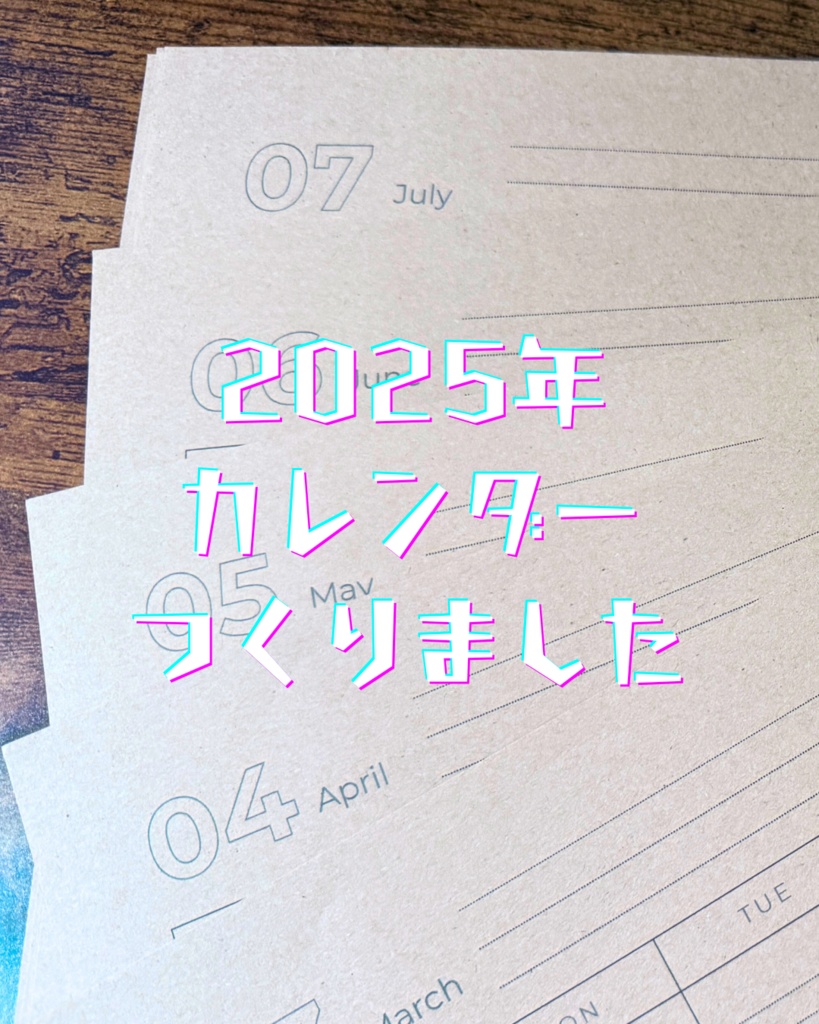 07 July
06 June
2025年
カレンダー
05 May
つくりました
04 April
March
TUE